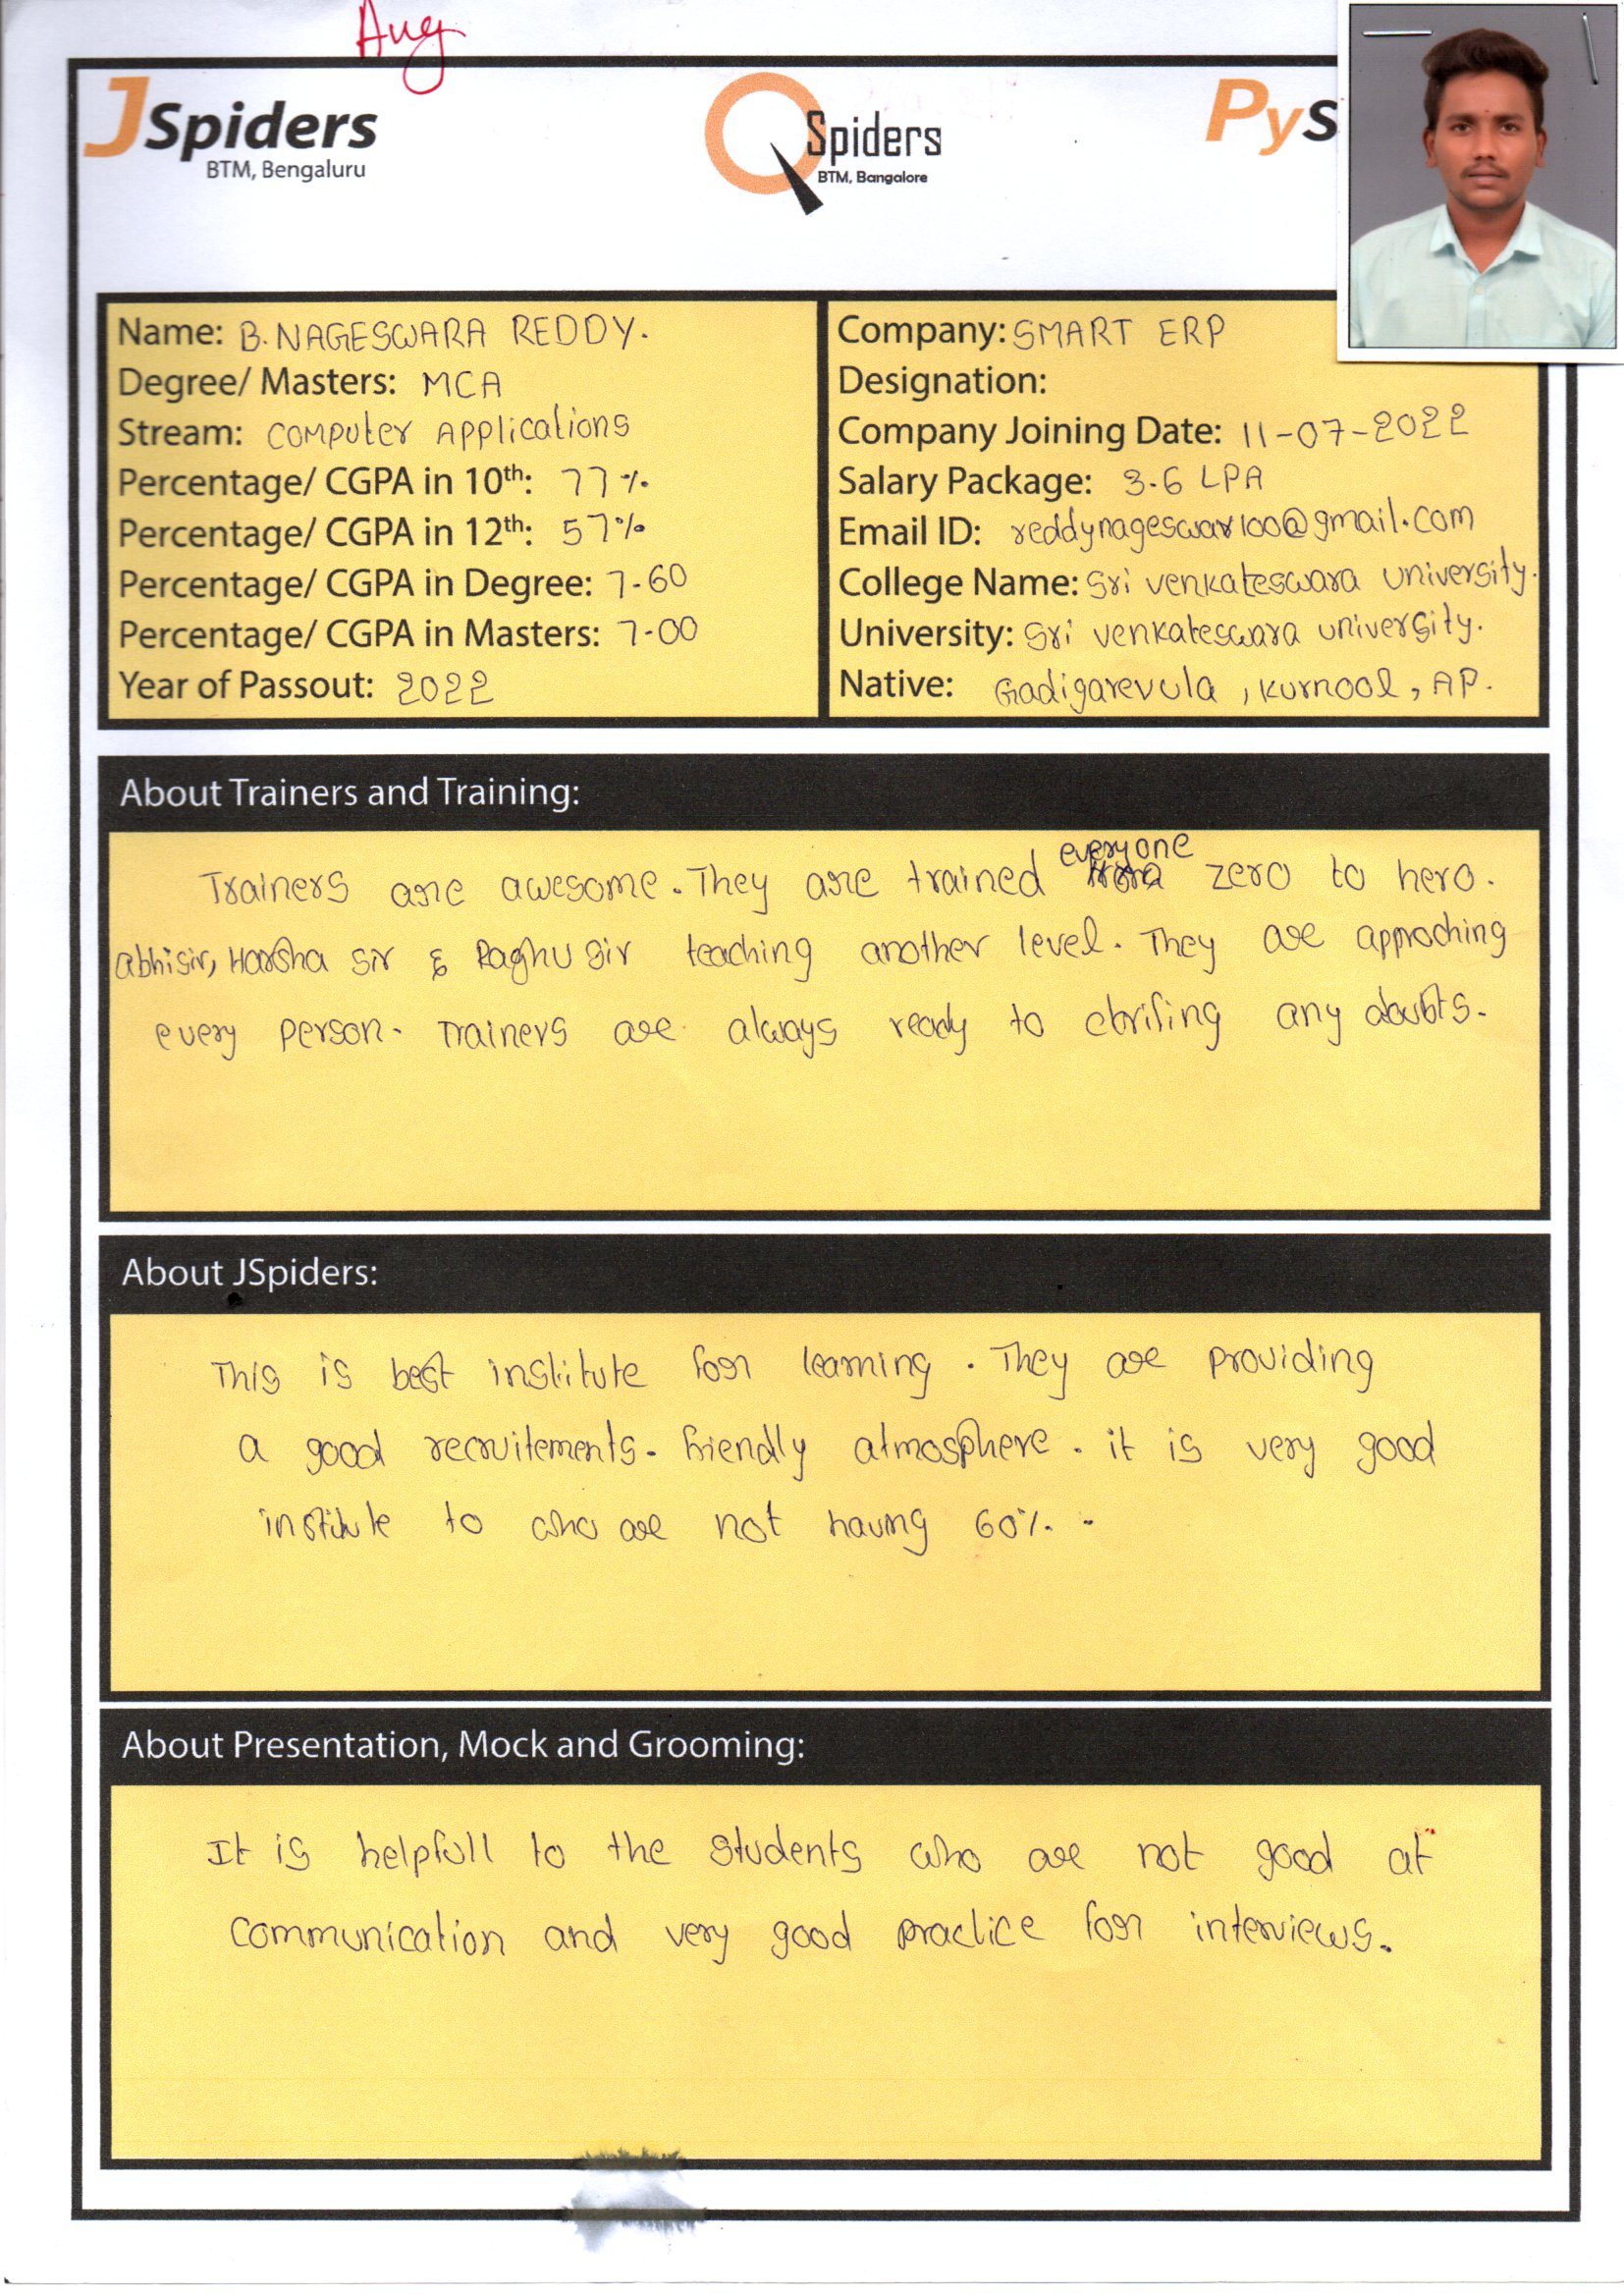 Aug
JSpiders
BTM, Bengaluru
QSpiders
BTM, Bangalore
PyS
Name: B. NAGESWARA REDDY.
Degree/ Masters: MCA
Stream: Computer Applications
Percentage/ CGPA in 10th: 77%
Percentage/ CGPA in 12th: 57%
Percentage/ CGPA in Degree: 7.60
Percentage/ CGPA in Masters: 7.00
Year of Passout: 2022
Company: SMART ERP
Designation:
Company Joining Date: 11-07-2022
Salary Package: 3.6 LPA
Email ID: reddynageswar100@gmail.com
College Name: Sri venkateswara university.
University: Sri venkateswara university.
Native: Gadigarevula, Kurnool, AP.
About Trainers and Training:
Trainers are awesome. They are trained everyone zero to hero.
abhisir, Harsha sir & Raghu sir teaching another level. They are approching
every person. Trainers are always ready to clarifing any doubts.
About JSpiders:
This is best institute for learning. They are providing
a good recruitements. friendly atmosphere. it is very good
institute to who are not having 60%.
About Presentation, Mock and Grooming:
It is helpfull to the students who are not good at
communication and very good practice for interviews.